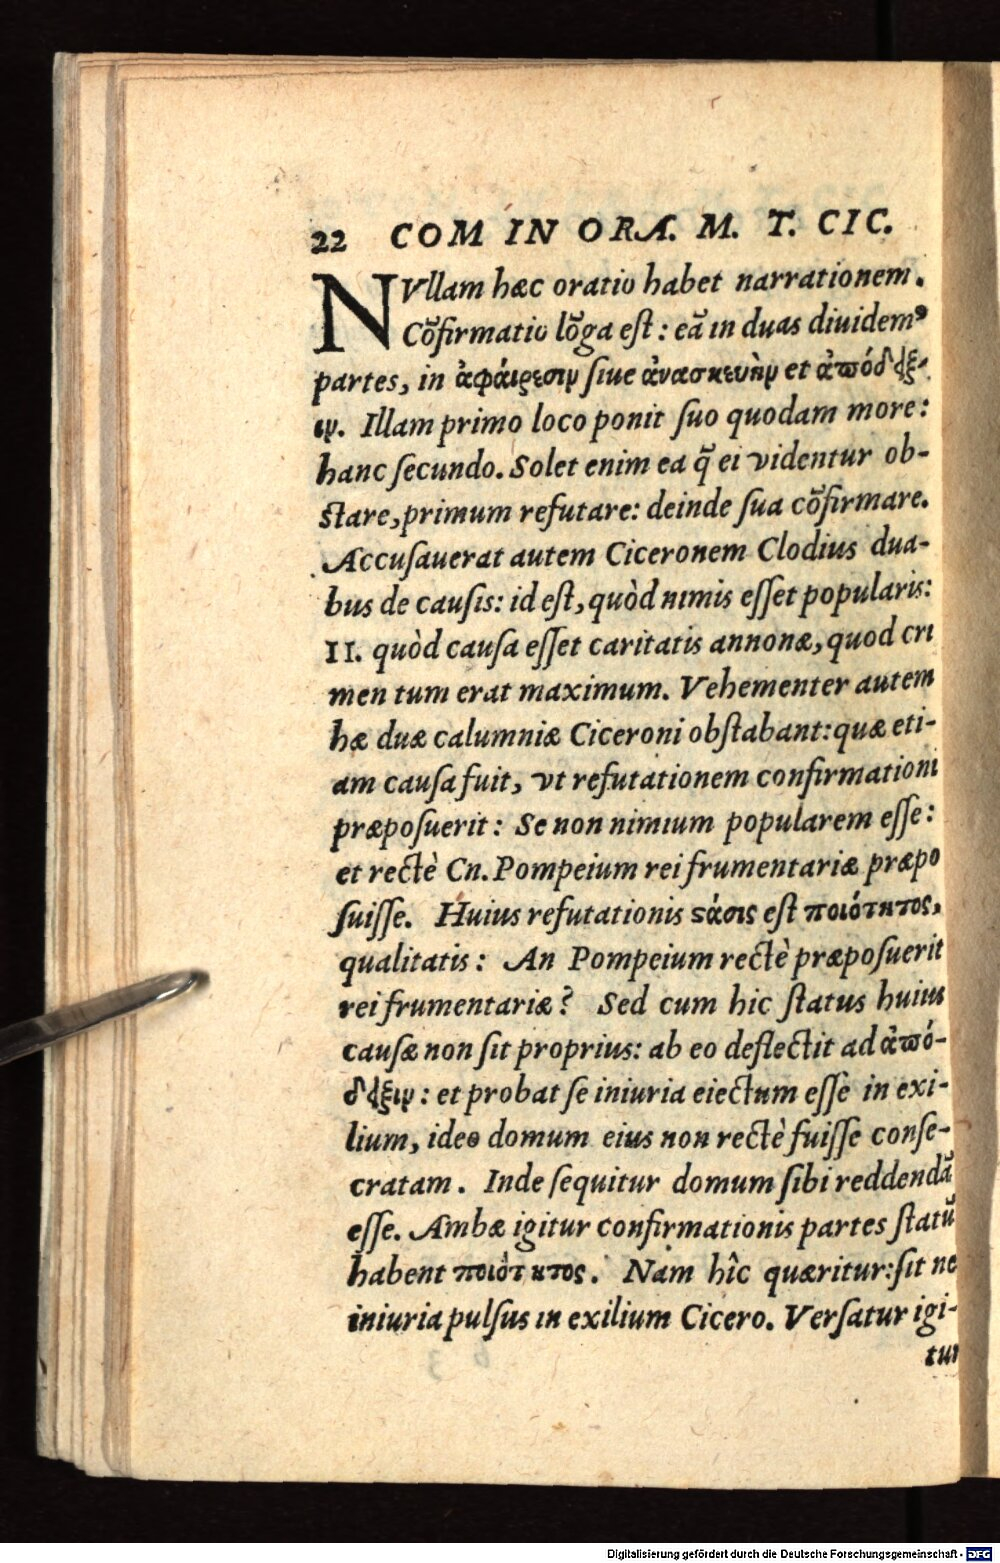 22 COM IN ORA. M. T. CIC.
NVllam hæc oratio habet narrationem.
Cõfirmatio lõga est: eã in duas diuidem⁹
partes, in ἀφάιρεσιν siue ἀνασκευὴν et ἀπόδειξ-
ιν. Illam primo loco ponit suo quodam more:
hanc secundo. Solet enim ea q̃ ei videntur ob-
stare, primum refutare: deinde sua cõfirmare.
Accusauerat autem Ciceronem Clodius dua-
bus de causis: id est, quòd nimis esset popularis:
II. quòd causa esset caritatis annonæ, quod cri
men tum erat maximum. Vehementer autem
hæ duæ calumniæ Ciceroni obstabant: quæ eti-
am causa fuit, vt refutationem confirmationi
præposuerit: Se non nimium popularem esse:
et rectè Cn. Pompeium rei frumentariæ præpo
suisse. Huius refutationis ϛάσις est ποιότητος,
qualitatis: An Pompeium rectè præposuerit
rei frumentariæ? Sed cum hic status huius
causæ non sit proprius: ab eo deflectit ad ἀπό-
δειξιν: et probat se iniuria eiectum esse in exi-
lium, ideo domum eius non rectè fuisse conse-
cratam. Inde sequitur domum sibi reddendã
esse. Ambæ igitur confirmationis partes statũ
habent ποιότητος. Nam hîc quæritur: sit ne
iniuria pulsus in exilium Cicero. Versatur igi-
tur
Digitalisierung gefördert durch die Deutsche Forschungsgemeinschaft - DFG